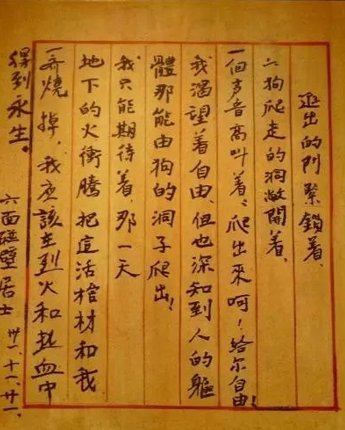 出的門緊鎖着、
狗爬走的洞敞開着、
一個声音高叫着：爬出來呵！給尔自由！
我渴望着自由、但也深知到人的軀
體那能由狗的洞子爬出！
我只能期待着、那一天
地下的火衝騰把這活棺材和我
一齊燒掉，我應該在烈火和热血中
得到永生。
六面碰壁居士 卅一、十一、廿一、